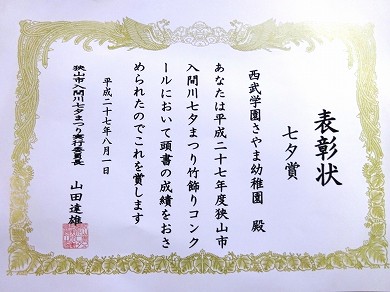 表彰状
七夕賞
西武学園さやま幼稚園 殿
あなたは平成二十七年度狭山市
入間川七夕まつり竹飾りコンク
ールにおいて頭書の成績をおさ
められたのでこれを賞します
平成二十七年八月一日
狭山市入間川七夕まつり実行委員長
山田達雄